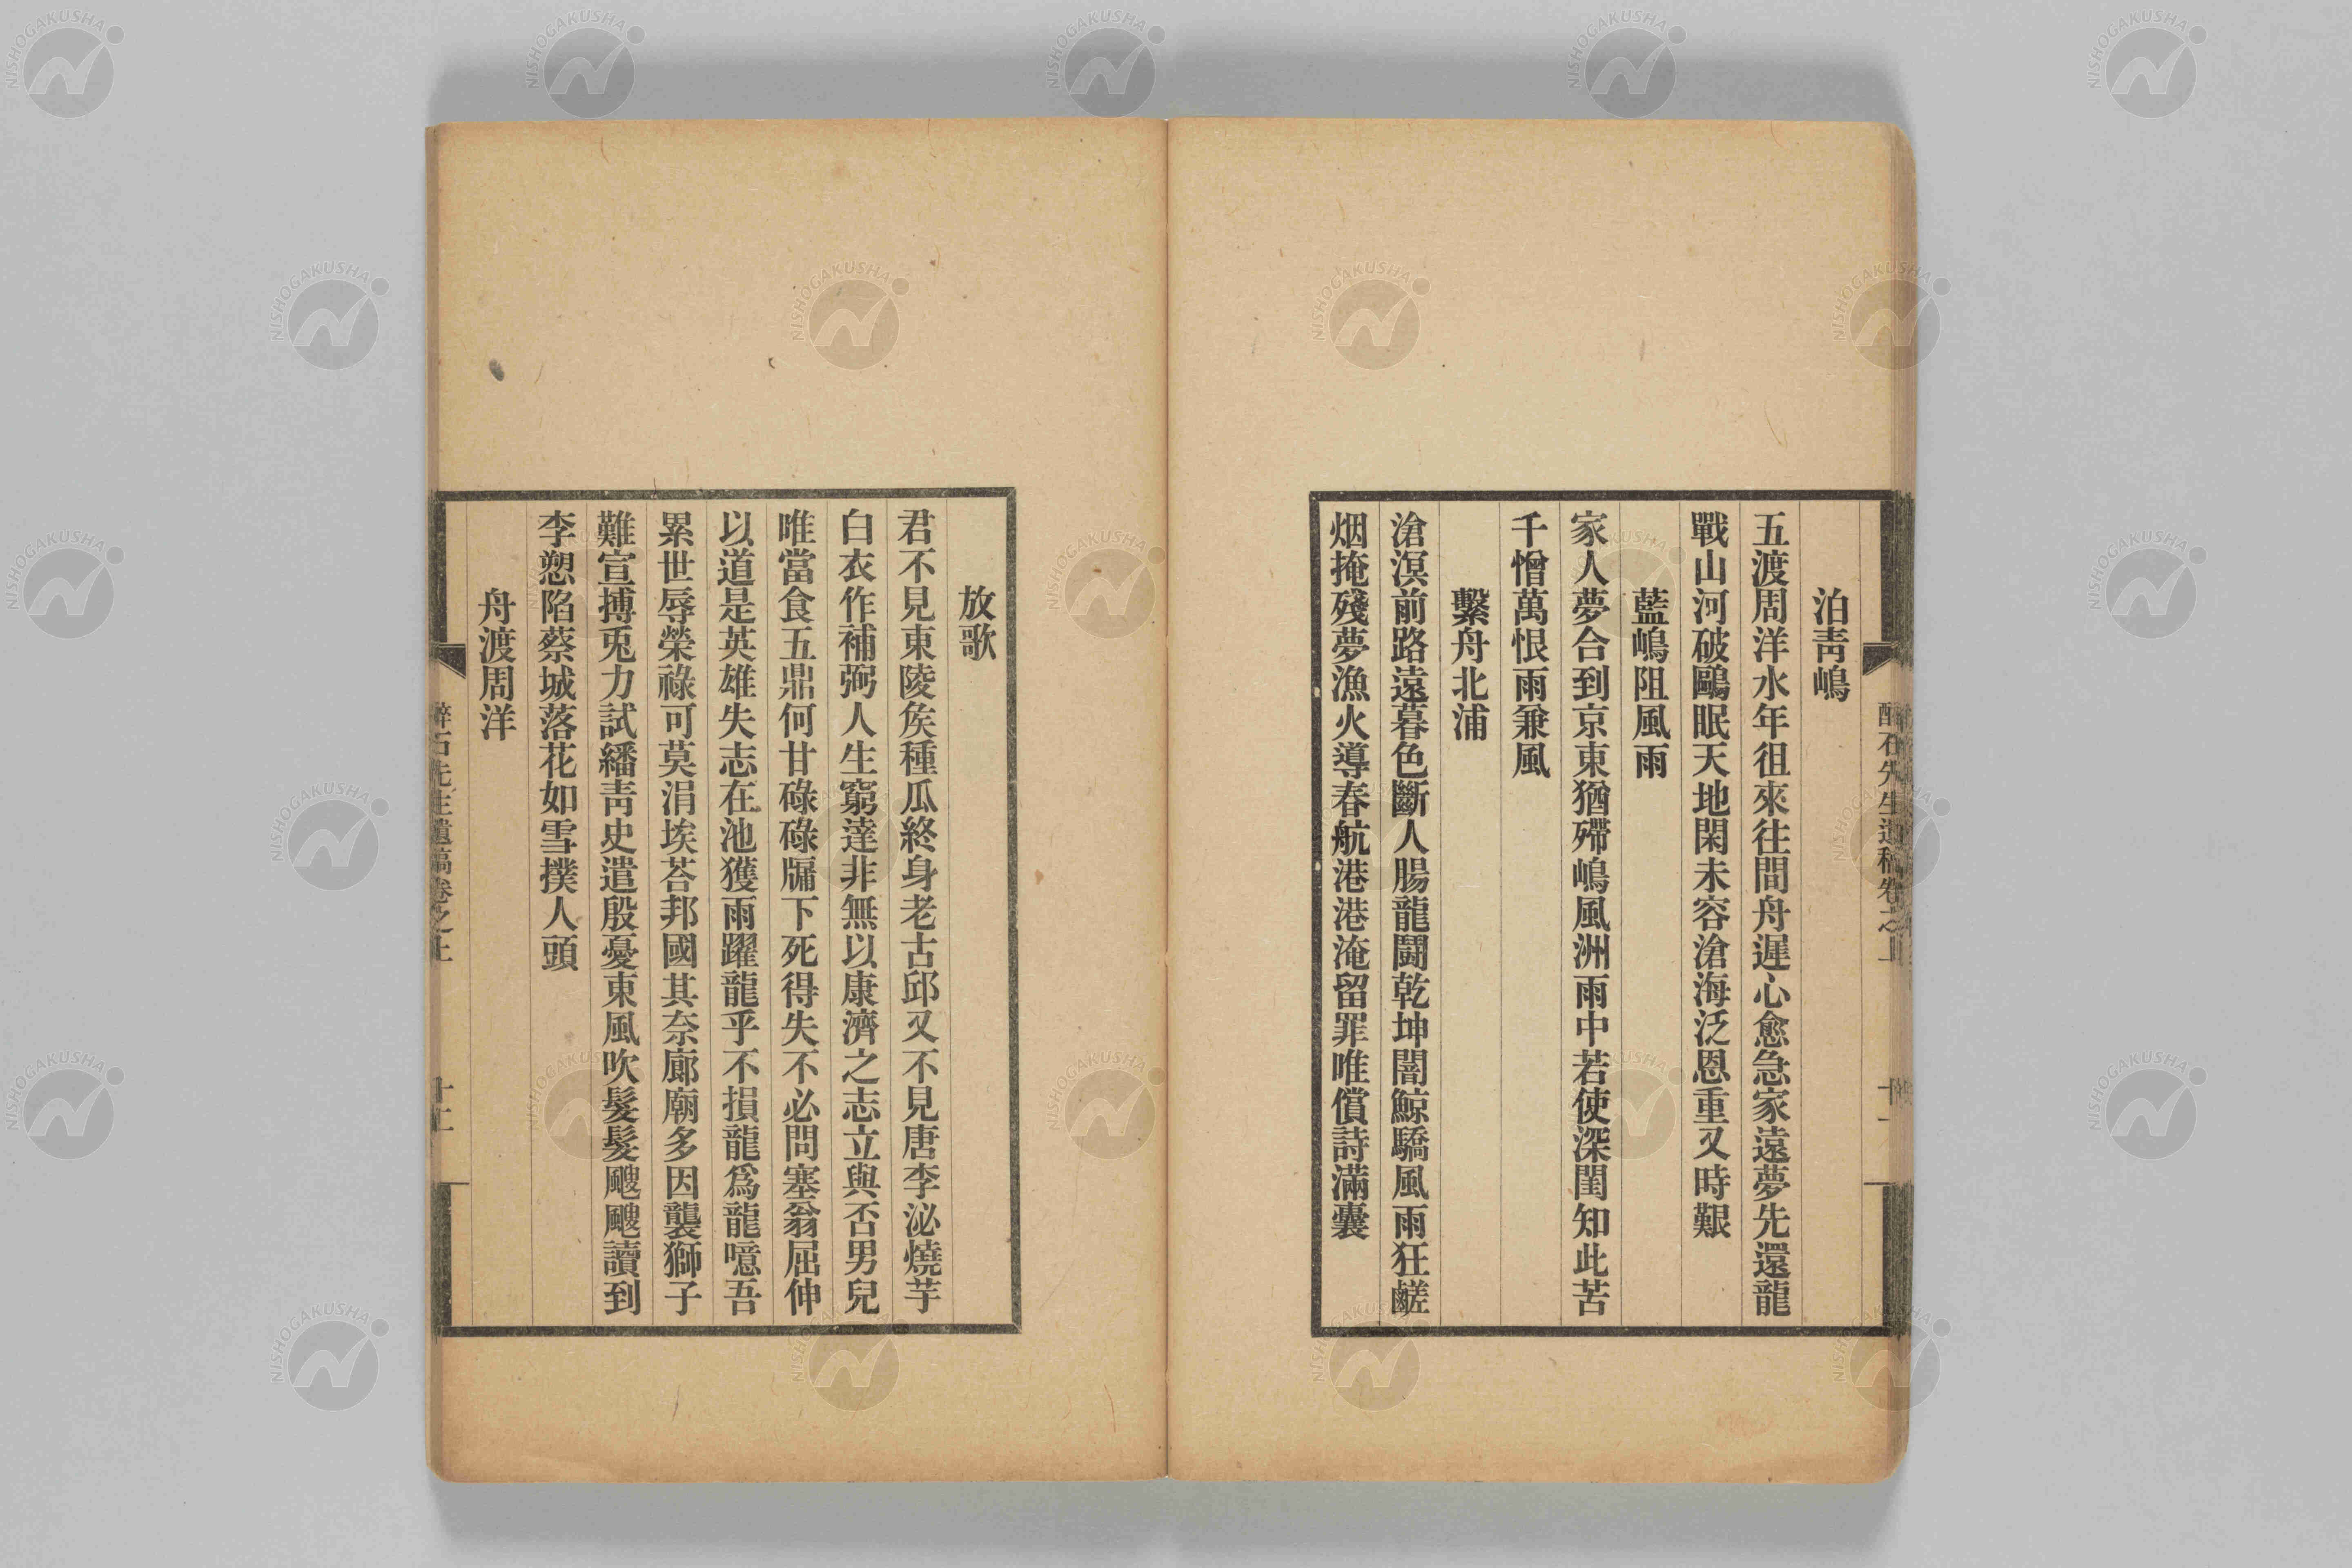 泊靑嶋
五渡周洋水年徂來往間舟遲心愈急家遠夢先還龍
戰山河破鷗眠天地閑未容滄海泛恩重又時艱
藍嶋阻風雨
家人夢合到京東猶殢嶋風洲雨中若使深閨知此苦
千憎萬恨雨兼風
繫舟北浦
滄溟前路遠暮色斷人腸龍鬪乾坤闇鯨驕風雨狂鹺
烟掩殘夢漁火導春航港港淹留罪唯償詩滿囊
放歌
君不見東陵矦種瓜終身老古邱又不見唐李泌燒芋
白衣作補弼人生窮達非無以康濟之志立與否男兒
唯當食五鼎何甘碌碌牖下死得失不必問塞翁屈伸
以道是英雄失志在池獲雨躍龍乎不損龍爲龍噫吾
累世辱榮祿可莫涓埃荅邦國其奈廊廟多因襲獅子
難宣搏兎力試繙靑史遣殷憂東風吹髮髮颼颼讀到
李愬陷蔡城落花如雪撲人頭
舟渡周洋
石先生遺稿卷之上
NISHOGAKUSHA